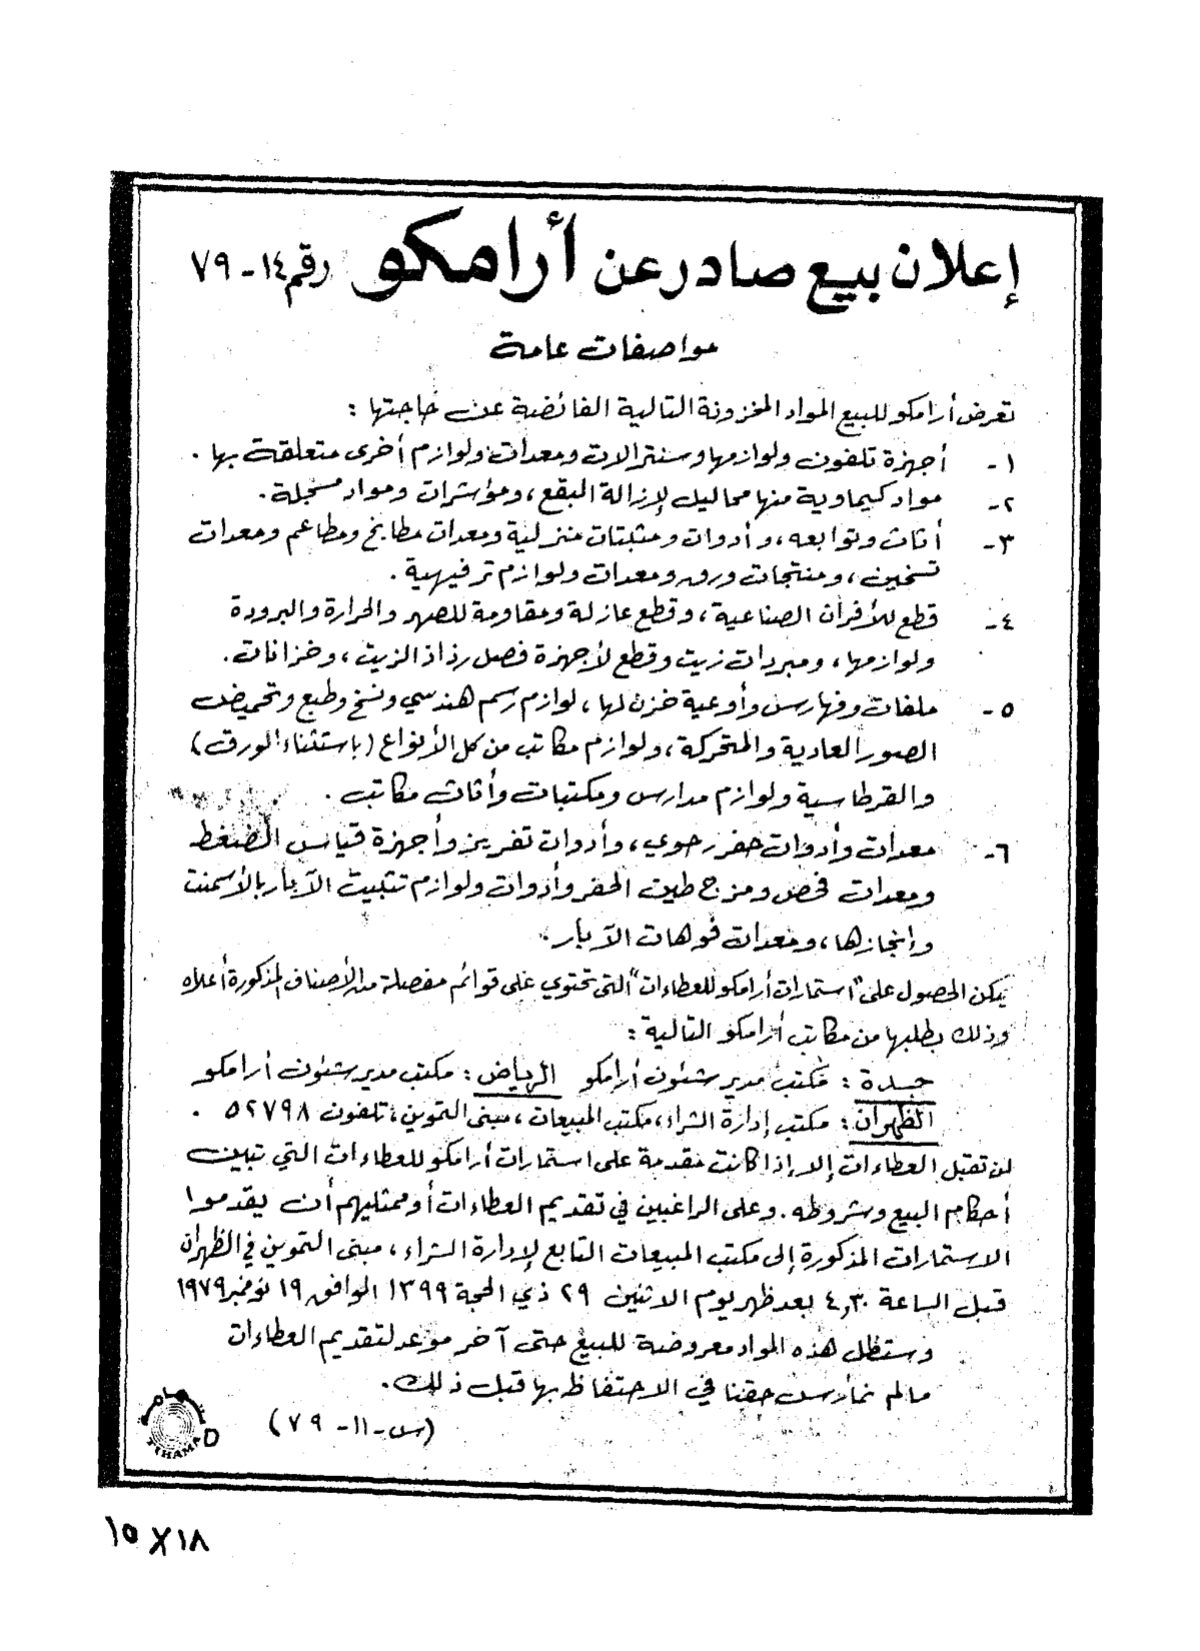 إعلان بيع صادر عن أرامكو رقم ١٤-٧٩
مواصفات عامة
تعرض أرامكو للبيع المواد المخزونة التالية الفائضة عن حاجتها :
١- أجهزة تلفون ولوازمها وسنترالات ومعدات ولوازم أخرى متعلقة بها .
٢- مواد كيماوية منها محاليل لإزالة البقع ، ومؤشرات ومواد مسجلة .
٣- أثاث وتوابعه ، وأدوات ومثبتات منزلية ومعدات مطابخ ومطاعم ومعدات
تسخين ، ومنتجات ورق ومعدات ولوازم ترفيهية .
٤- قطع للأفران الصناعية ، وقطع عازلة ومقاومة للصهر والحرارة والبرودة
ولوازمها ، ومبردات زيت وقطع لأجهزة فصل رذاذ الزيت ، وخزانات .
٥- ملفات وفهارس وأوعية خزن لها ، لوازم رسم هندسي ونسخ وطبع وتحميض
الصور العادية والمتحركة ، ولوازم مكاتب من كل الأنواع (باستثناء الورق)
والقرطاسية ولوازم مدارس ومكتبات وأثاث مكاتب .
٦- معدات وأدوات حفر رحوي ، وأدوات تفريز وأجهزة قياس الضغط
ومعدات فحص ومزج طين الحفر وأدوات ولوازم تثبيت الآبار بالأسمنت
وإنجازها ، ومعدات فوهات الآبار .
يمكن الحصول على "استمارات أرامكو للعطاءات" التي تحتوي على قوائم مفصلة من الأصناف المذكورة أعلاه
وذلك بطلبها من مكاتب أرامكو التالية :
جدة : مكتب مدير شئون أرامكو الرياض : مكتب مدير شئون أرامكو
الظهران : مكتب إدارة الشراء ، مكتب المبيعات ، مبنى التموين ، تلفون ٥٢٧٩٨ .
لن تقبل العطاءات إلا إذا كانت مقدمة على استمارات أرامكو للعطاءات التي تبين
أحكام البيع وشروطه . وعلى الراغبين في تقديم العطاءات أو ممثليهم أن يقدموا
الاستمارات المذكورة إلى مكتب المبيعات التابع لإدارة الشراء ، مبنى التموين في الظهران
قبل الساعة ٤,٣٠ بعد ظهر يوم الاثنين ٢٩ ذي الحجة ١٣٩٩ الموافق ١٩ نوفمبر ١٩٧٩
وستظل هذه المواد معروضة للبيع حتى آخر موعد لتقديم العطاءات
مالم نمارس حقنا في الاحتفاظ بها قبل ذلك .
(س-١١-٧٩)
تهامة
TIHAMA
١٥ X ١٨